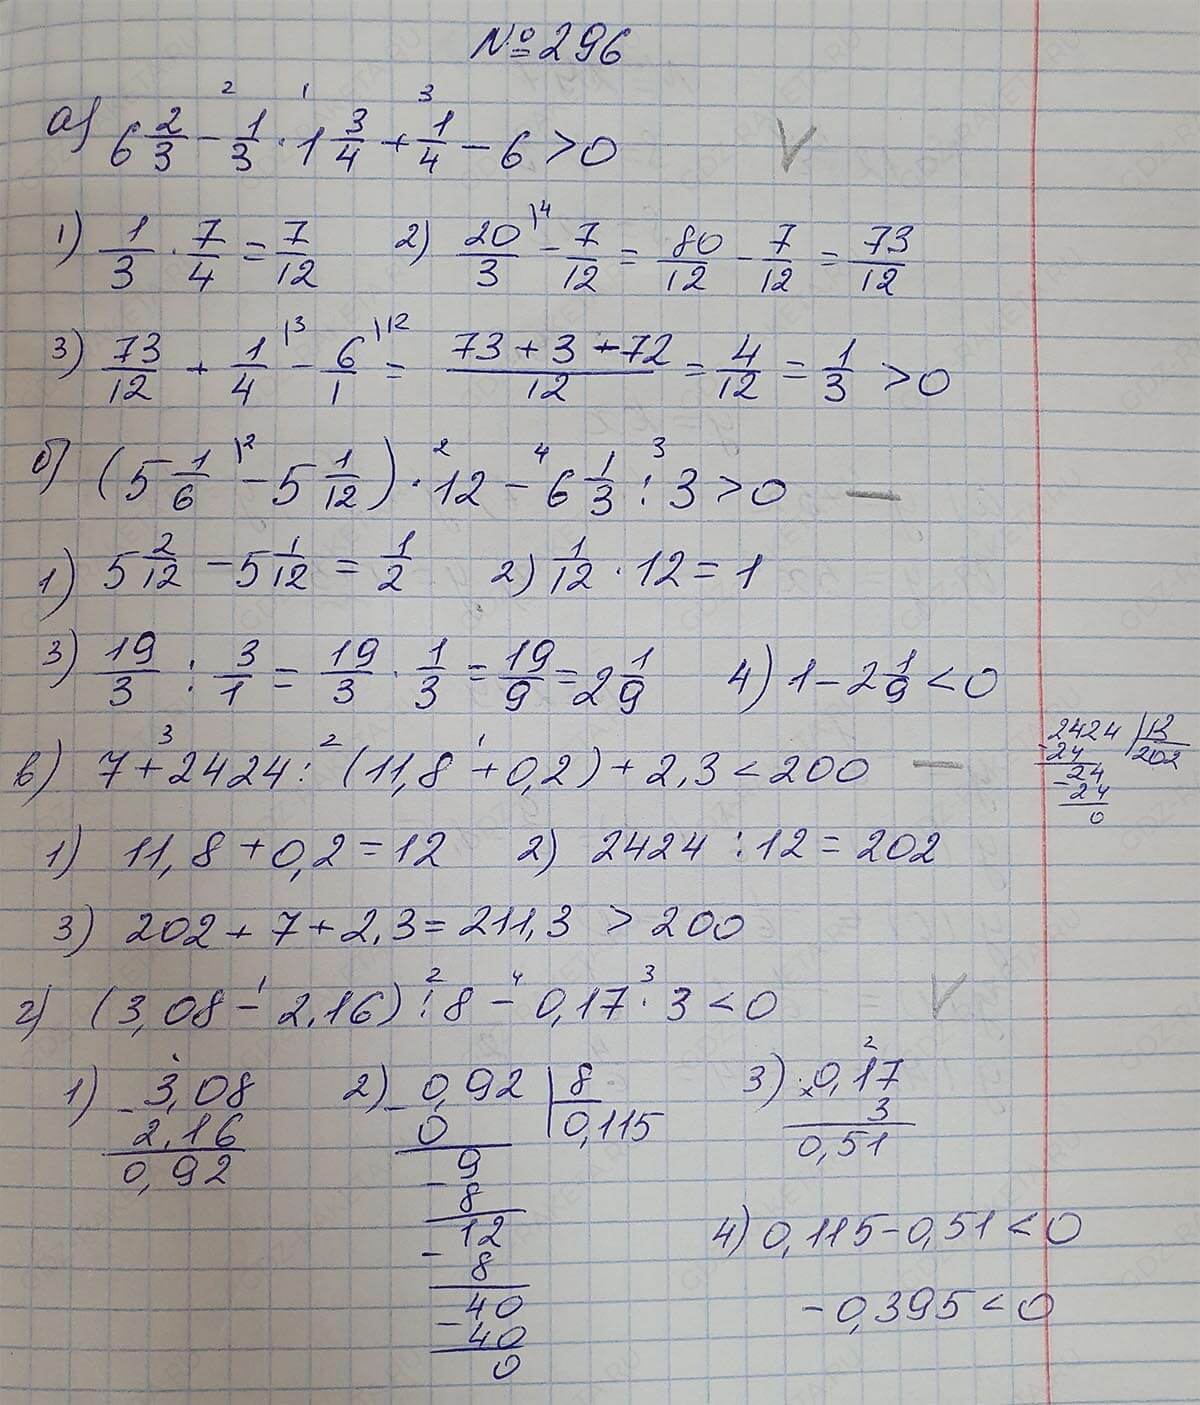 №296
а) 6 2/3 - 1/3 · 1 3/4 + 1/4 - 6 > 0 V
1) 1/3 · 7/4 = 7/12 2) 20/3 - 7/12 = 80/12 - 7/12 = 73/12
3) 73/12 + 1/4 - 6/1 = (73 + 3 - 72)/12 = 4/12 = 1/3 > 0
б) (5 1/6 - 5 1/12) · 12 - 6 1/3 : 3 > 0 —
1) 5 2/12 - 5 1/12 = 1/2 2) 1/12 · 12 = 1
3) 19/3 : 3/1 = 19/3 · 1/3 = 19/9 = 2 1/9 4) 1 - 2 1/9 < 0
в) 7 + 2424 : (11,8 + 0,2) + 2,3 < 200 —
2424 | 12
- 24 202
- 24
24
0
1) 11,8 + 0,2 = 12 2) 2424 : 12 = 202
3) 202 + 7 + 2,3 = 211,3 > 200
г) (3,08 - 2,16) : 8 - 0,17 · 3 < 0 V
1) - 3,08
2,16
0,92
2) - 0,92 | 8
0 0,115
- 9
8
- 12
8
- 40
40
0
3) × 0,17
3
0,51
4) 0,115 - 0,51 < 0
- 0,395 < 0